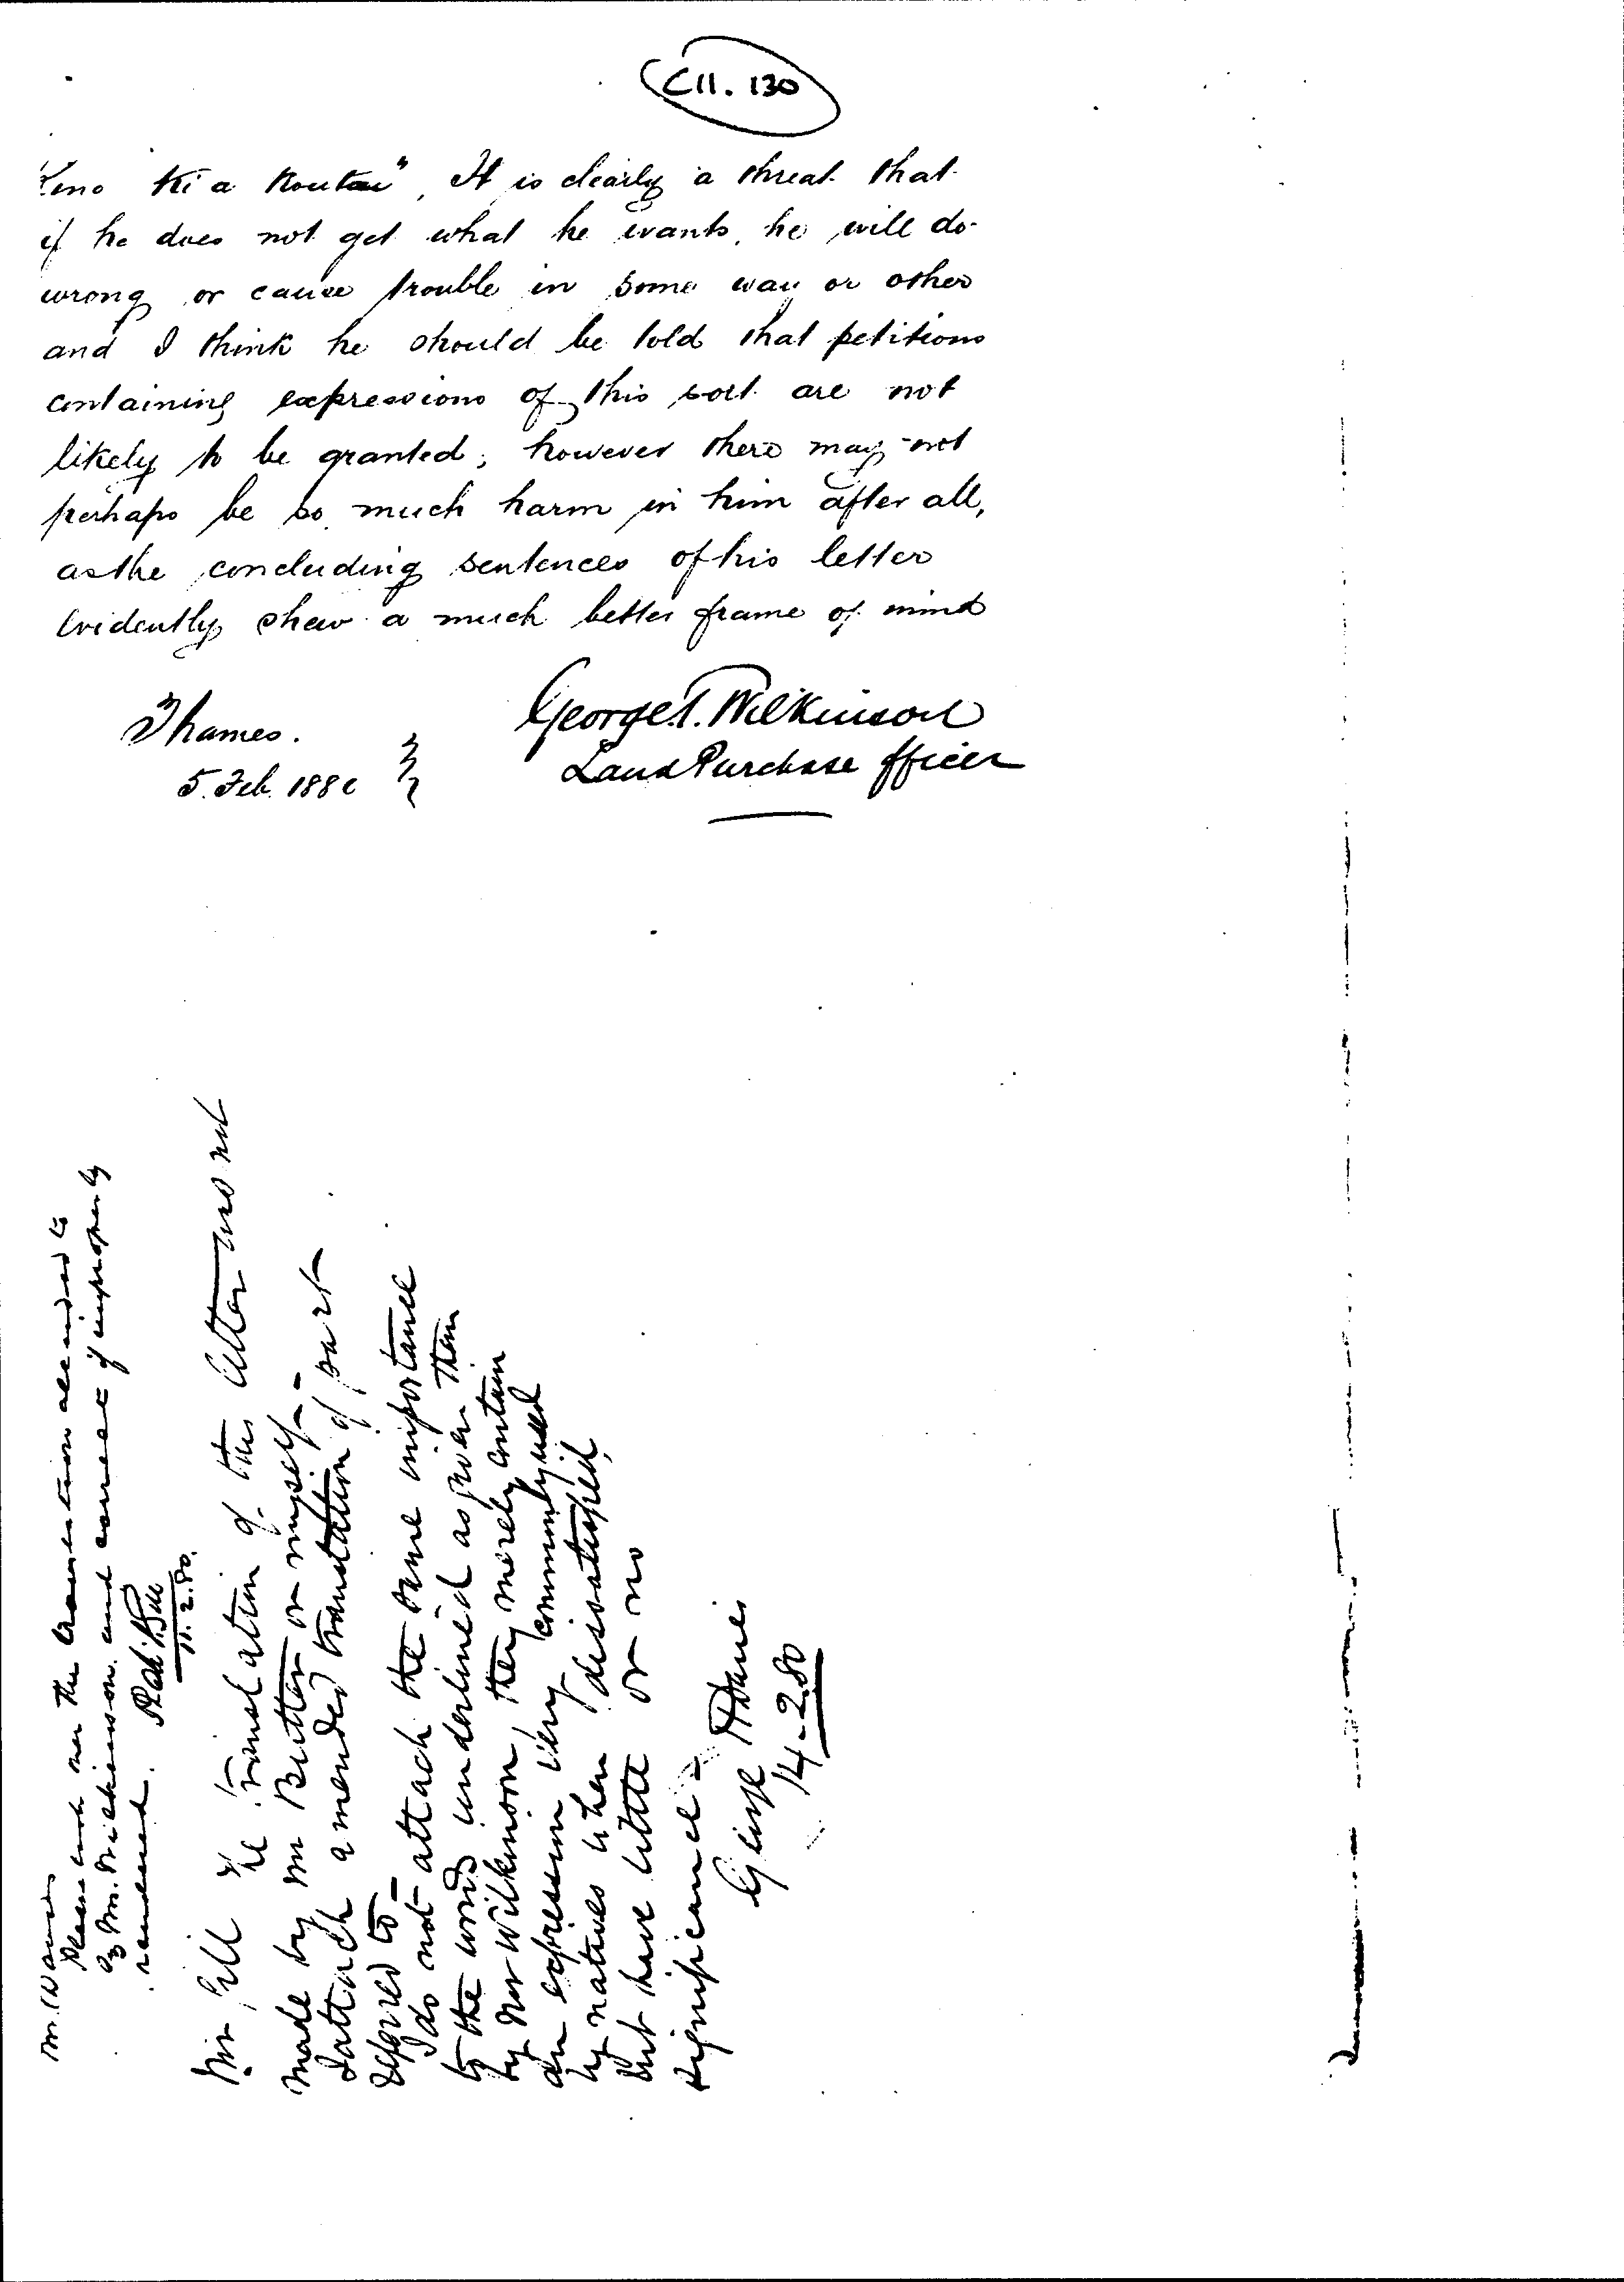 C11. 130
"Keno ki a Koutou". It is clearly a threat that
if he does not get what he wants, he will do
wrong or cause trouble in some way or other
and I think he should be told that petitions
containing expressions of this sort are not
likely to be granted; however there may not
perhaps be so much harm in him after all,
as the concluding sentences of his letter
evidently shew a much better frame of mind
George T. Wilkinson
Land Purchase Officer
Thames.
5. Feb. 1880
Please look over the translation
by Mr. Wilkinson and correct if improperly
rendered.
11.2.80.
Mr Gill The translation of this letter was not
made by Mr Butler or myself -
I attach amended translation of part
referred to -
I do not attach the same importance
to the words underlined as given them
by Mr Wilkinson, they merely contain
an expression very commonly used
by natives when dissatisfied,
but have little or no
significance -
George Davies
14-2-80